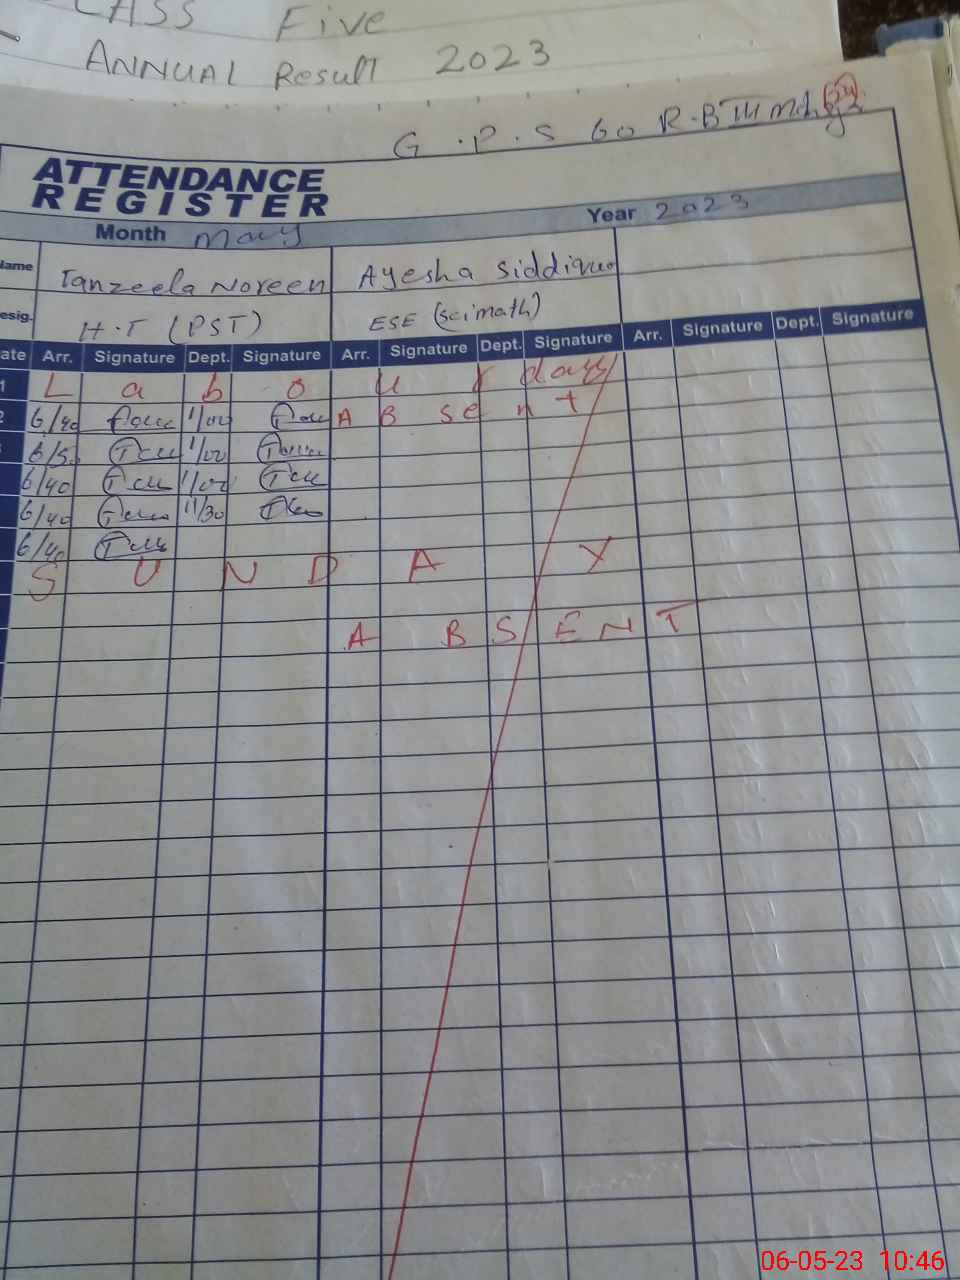 CLASS Five
ANNUAL Result 2023
G.P.S 60 R.B
ATTENDANCE
REGISTER
Month May Year 2023
Name Tanzeela Noreen Ayesha Siddique
Desig. H.T (PST) ESE (sci math)
Date Arr. Signature Dept. Signature Arr. Signature Dept. Signature Arr. Signature Dept. Signature
1 L a b o u r days
2 6/40 1/00 A B s e n t
6/50 1/00
6/40 1/00
6/40 11/30
6/40
S U N D A Y
A B S E N T
06-05-23 10:46